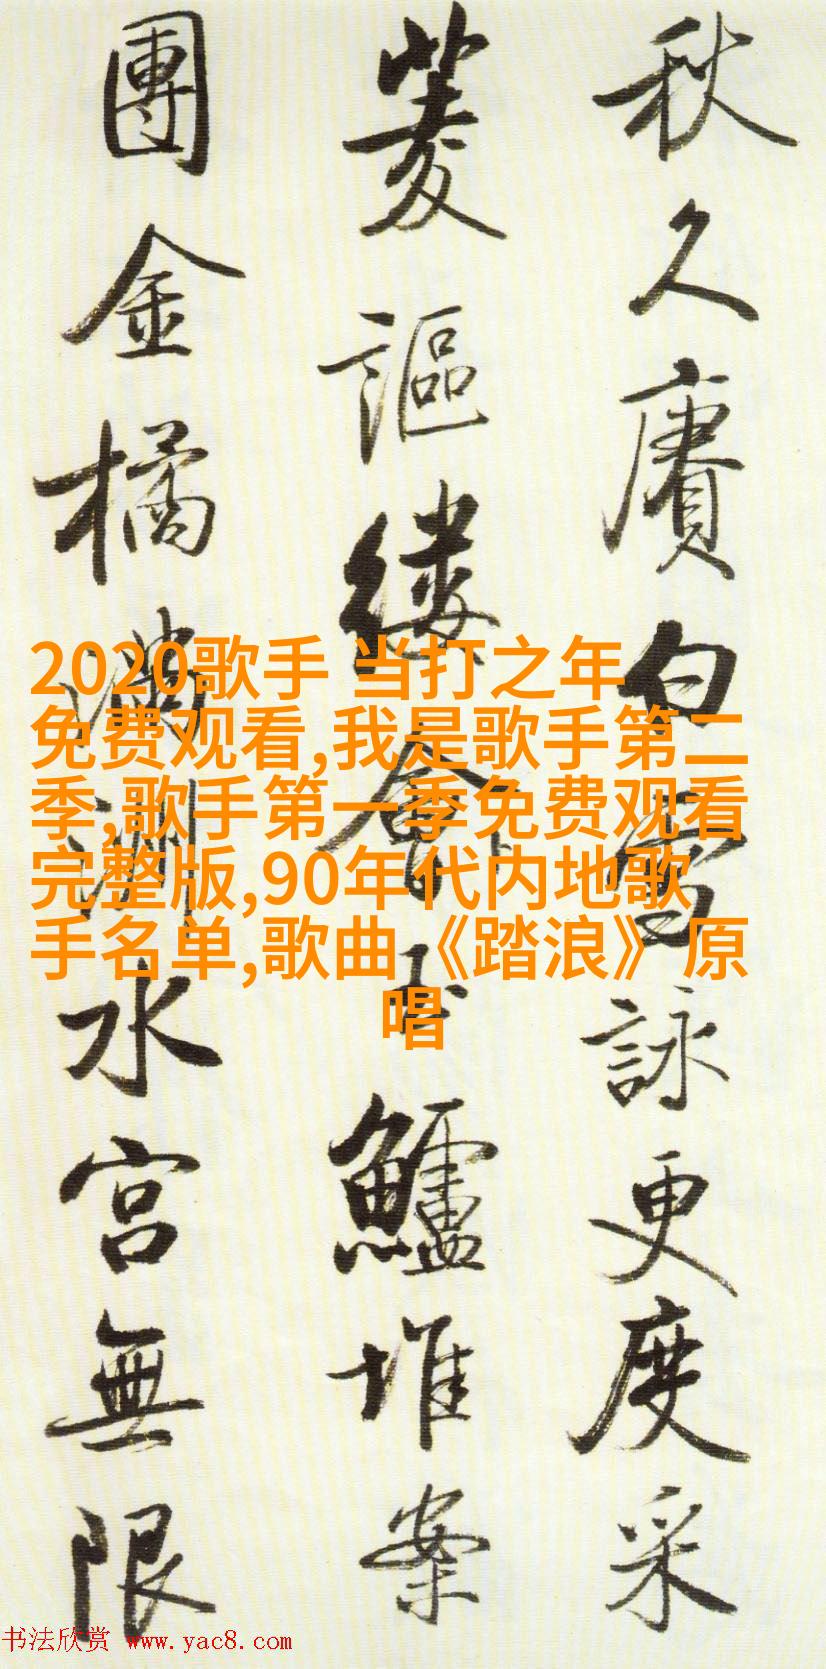 秋久賡白雪詠更度采
菱謳縷會玉鱸堆案
團金橘滿洲水宮無限
2020歌手 当打之年
免费观看,我是歌手第二
季,歌手第一季免费观看
完整版,90年代内地歌
手名单,歌曲《踏浪》原
唱
书法欣赏 www.yac8.com